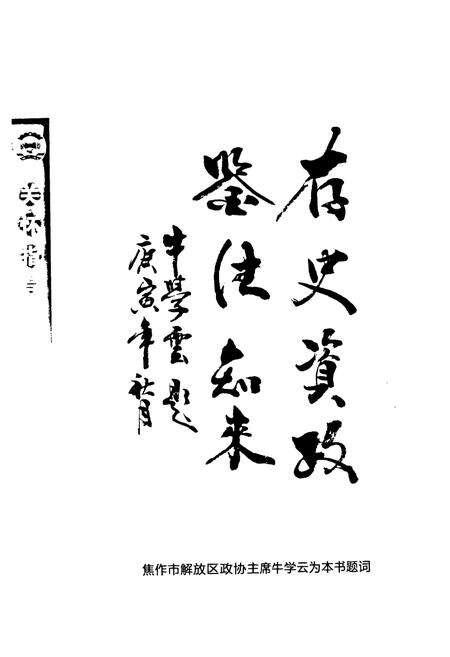 存史資政
鉴往知來
牛學雲題
庚寅年秋月
关怀指导
焦作市解放区政协主席牛学云为本书题词